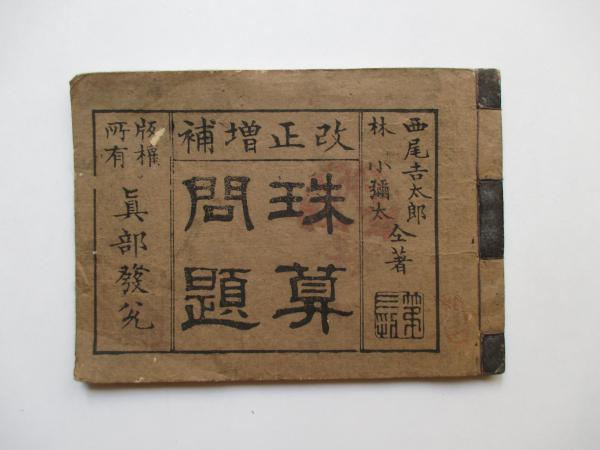 西尾吉太郎
林 小彌太
仝著
改正增補
珠算
問題
版權
所有
眞部發兌